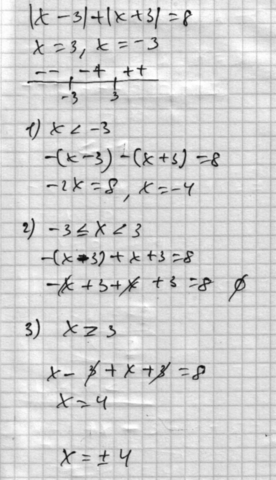 |x-3|+|x+3|=8
x=3, x=-3
-- -+ ++
-3 3
1) x<-3
-(x-3)-(x+3)=8
-2x=8, x=-4
2) -3≤x<3
-(x-3)+x+3=8
-x+3+x+3=8 ∅
3) x≥3
x-3+x+3=8
x=4
x=±4